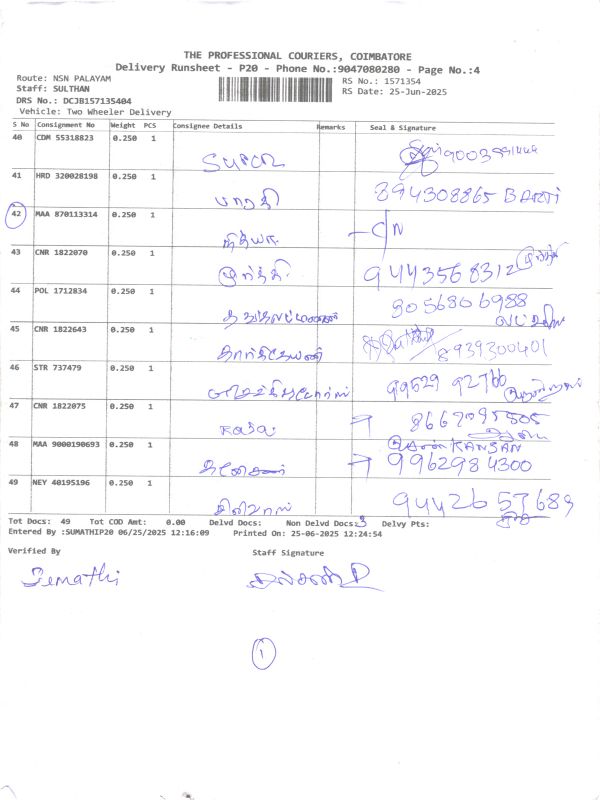 THE PROFESSIONAL COURIERS, COIMBATORE
Delivery Runsheet - P20 - Phone No.:9047080280 - Page No.:4
Route: NSN PALAYAM RS No.: 1571354
Staff: SULTHAN RS Date: 25-Jun-2025
DRS No.: DCJB157135404
Vehicle: Two Wheeler Delivery
S No Consignment No Weight PCS Consignee Details Remarks Seal & Signature
40 CDM 55318823 0.250 1 Super
41 HRD 320028198 0.250 1 பாரதி 894308865 BARTI
42 MAA 870113314 0.250 1 நித்யா C/N
43 CNR 1822070 0.250 1 மூர்த்தி 9443568312
44 POL 1712834 0.250 1 8056806988
45 CNR 1822643 0.250 1 கார்த்திகேயனி 8939300401
46 STR 737479 0.250 1 99529 92766
47 CNR 1822075 0.250 1 Raja 8667095505
48 MAA 9000190693 0.250 1 KANSAN 9962984300
49 NEY 40195196 0.250 1 94426 57689
Tot Docs: 49 Tot COD Amt: 0.00 Delvd Docs: Non Delvd Docs: 3 Delvy Pts:
Entered By :SUMATHIP20 06/25/2025 12:16:09 Printed On: 25-06-2025 12:24:54
Verified By Staff Signature
Sumathi
1